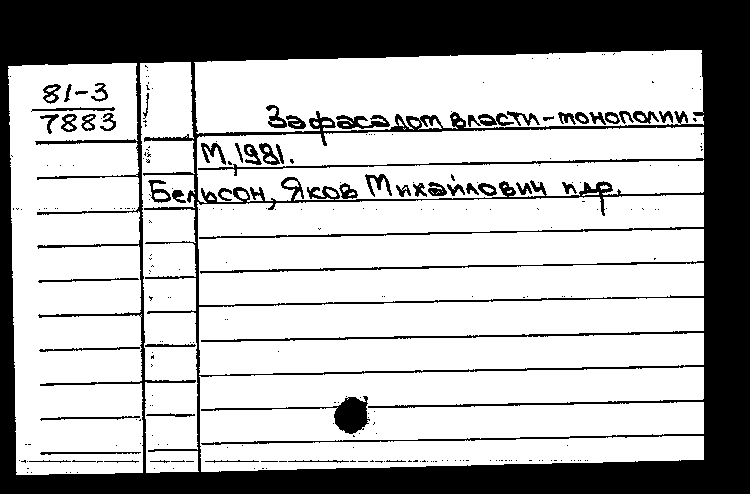 81-3
7883
За фасадом власти - монополии.-
М., 1981.
Бельсон, Яков Михайлович и др.